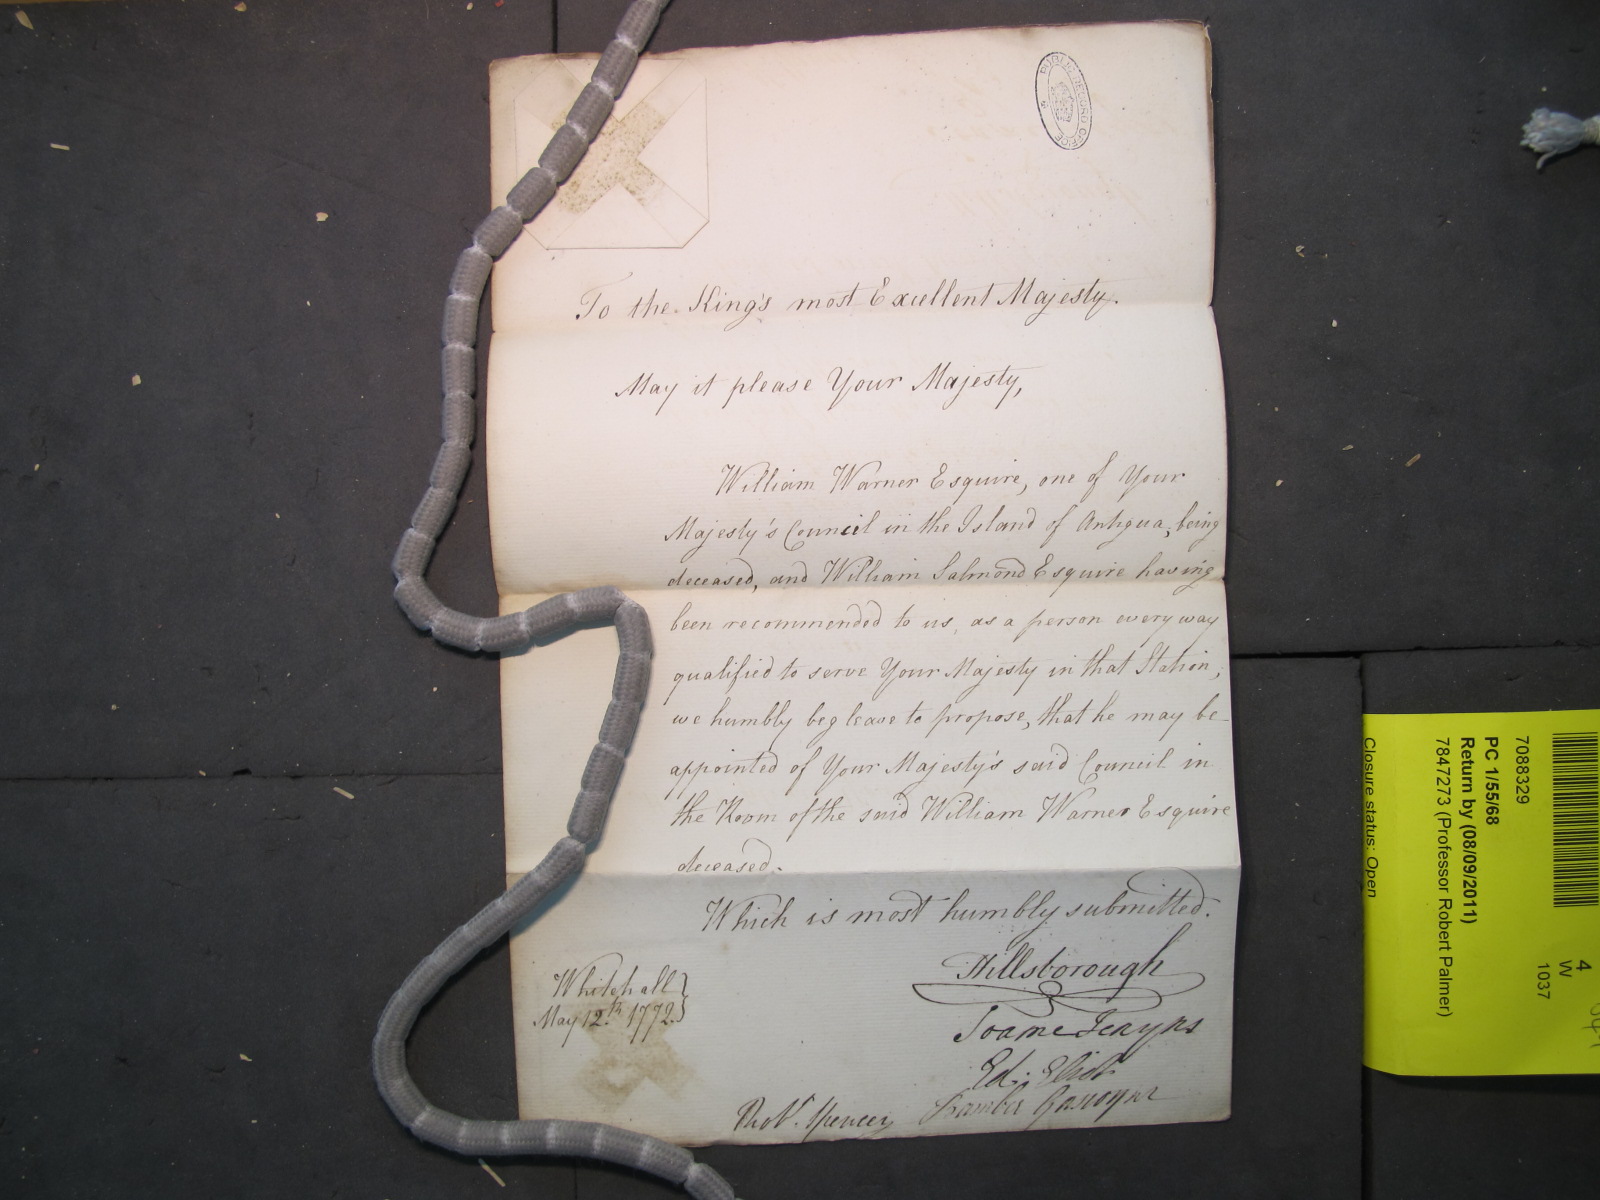 PUBLIC RECORD OFFICE
To the King's most Excellent Majesty.
May it please Your Majesty,
William Warner Esquire, one of Your
Majesty's Council in the Island of Antigua, being
deceased, and William Salmond Esquire having
been recommended to us, as a person every way
qualified to serve Your Majesty in that Station,
we humbly beg leave to propose, that he may be
appointed of Your Majesty's said Council in
the Room of the said William Warner Esquire
deceased.
Which is most humbly submitted.
Hillsborough
Soame Jenyns
Ed: Eliot
Bamber Gascoyne
Whitehall
May 12.th 1772.
Spencer
7088329
PC 1/55/68
Return by (08/09/2011)
7847273 (Professor Robert Palmer)
Closure status: Open
4
W
1037